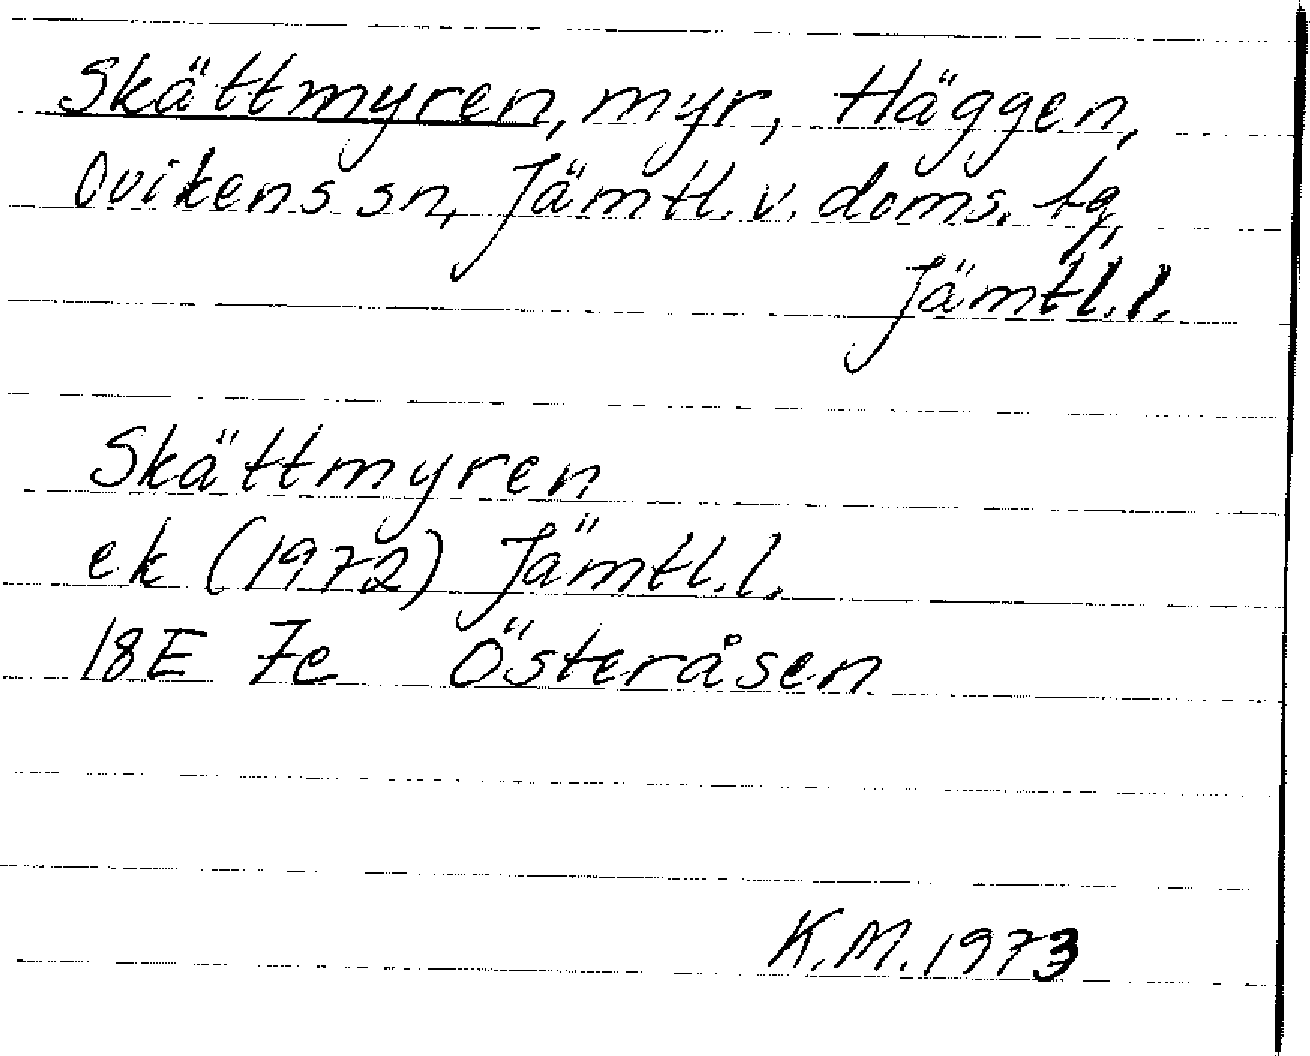 Skättmyren, myr, Häggen,
Ovikens sn, Jämtl. v. doms. tg,
Jämtl. l.
Skättmyren
ek (1972) Jämtl. l.
18E 7e Österåsen
K.M. 1973